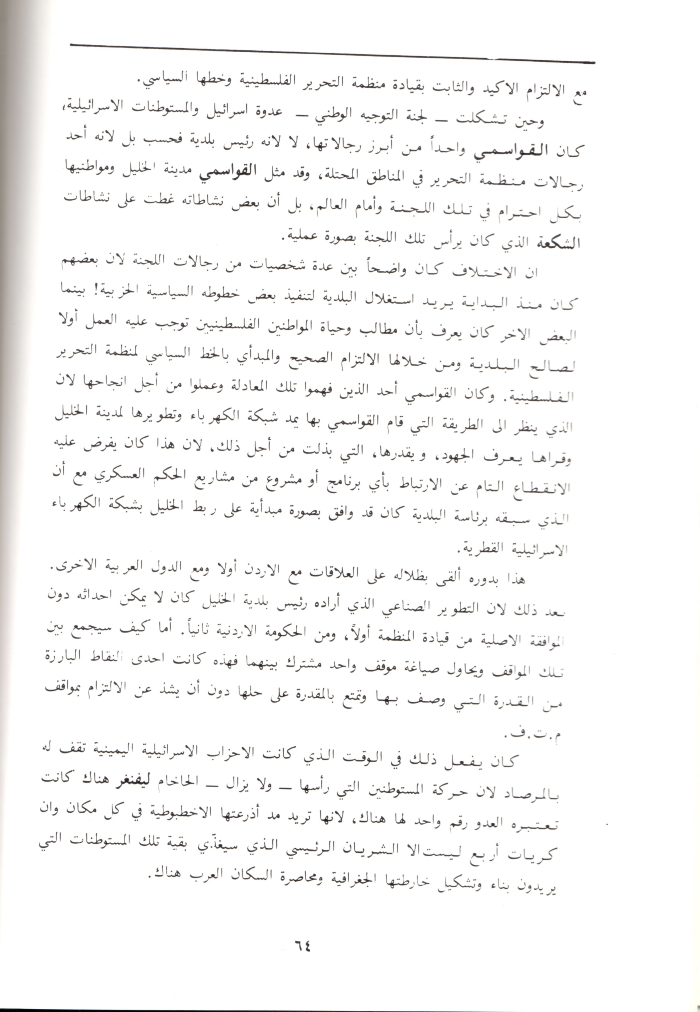 مع الالتزام الاكيد والثابت بقيادة منظمة التحرير الفلسطينية وخطها السياسي.
وحين تشكلت ــ لجنة التوجيه الوطني ــ عدوة اسرائيل والمستوطنات الاسرائيلية،
كان القواسمي واحداً من أبرز رجالاتها، لا لانه رئيس بلدية فحسب بل لانه أحد
رجالات منظمة التحرير في المناطق المحتلة، وقد مثل القواسمي مدينة الخليل ومواطنيها
بكل احترام في تلك اللجنة وأمام العالم، بل أن بعض نشاطاته غطت على نشاطات
الشكعة الذي كان يرأس تلك اللجنة بصورة عملية.
ان الاختلاف كان واضحاً بين عدة شخصيات من رجالات اللجنة لان بعضهم
كان منذ البداية يريد استغلال البلدية لتنفيذ بعض خطوطه السياسية الحزبية! بينما
البعض الاخر كان يعرف بأن مطالب وحياة المواطنين الفلسطينيين توجب عليه العمل أولا
لصالح البلدية ومن خلالها الالتزام الصحيح والمبدأي بالخط السياسي لمنظمة التحرير
الفلسطينية. وكان القواسمي أحد الذين فهموا تلك المعادلة وعملوا من أجل انجاحها لان
الذي ينظر الى الطريقة التي قام القواسمي بها يمد شبكة الكهرباء وتطويرها لمدينة الخليل
وقراها يعرف الجهود، ويقدرها، التي بذلت من أجل ذلك، لان هذا كان يفرض عليه
الانقطاع التام عن الارتباط بأي برنامج أو مشروع من مشاريع الحكم العسكري مع أن
الذي سبقه برئاسة البلدية كان قد وافق بصورة مبدأية على ربط الخليل بشبكة الكهرباء
الاسرائيلية القطرية.
هذا بدوره ألقى بظلاله على العلاقات مع الاردن أولا ومع الدول العربية الاخرى.
بعد ذلك لان التطوير الصناعي الذي أراده رئيس بلدية الخليل كان لا يمكن احداثه دون
الموافقة الاصلية من قيادة المنظمة أولاً، ومن الحكومة الاردنية ثانياً. أما كيف سيجمع بين
تلك المواقف ويحاول صياغة موقف واحد مشترك بينهما فهذه كانت احدى النقاط البارزة
من القدرة التي وصف بها وتمتع بالمقدرة على حلها دون أن يشذ عن الالتزام بمواقف
م.ت.ف.
كان يفعل ذلك في الوقت الذي كانت الاحزاب الاسرائيلية اليمينية تقف له
بالمرصاد لان حركة المستوطنين التي رأسها ــ ولا يزال ــ الحاخام ليفنغر هناك كانت
تعتبره العدو رقم واحد لها هناك، لانها تريد مد أذرعتها الاخطبوطية في كل مكان وان
كريات أربع ليست الا الشريان الرئيسي الذي سيغذّي بقية تلك المستوطنات التي
يريدون بناء وتشكيل خارطتها الجغرافية ومحاصرة السكان العرب هناك.
٦٤